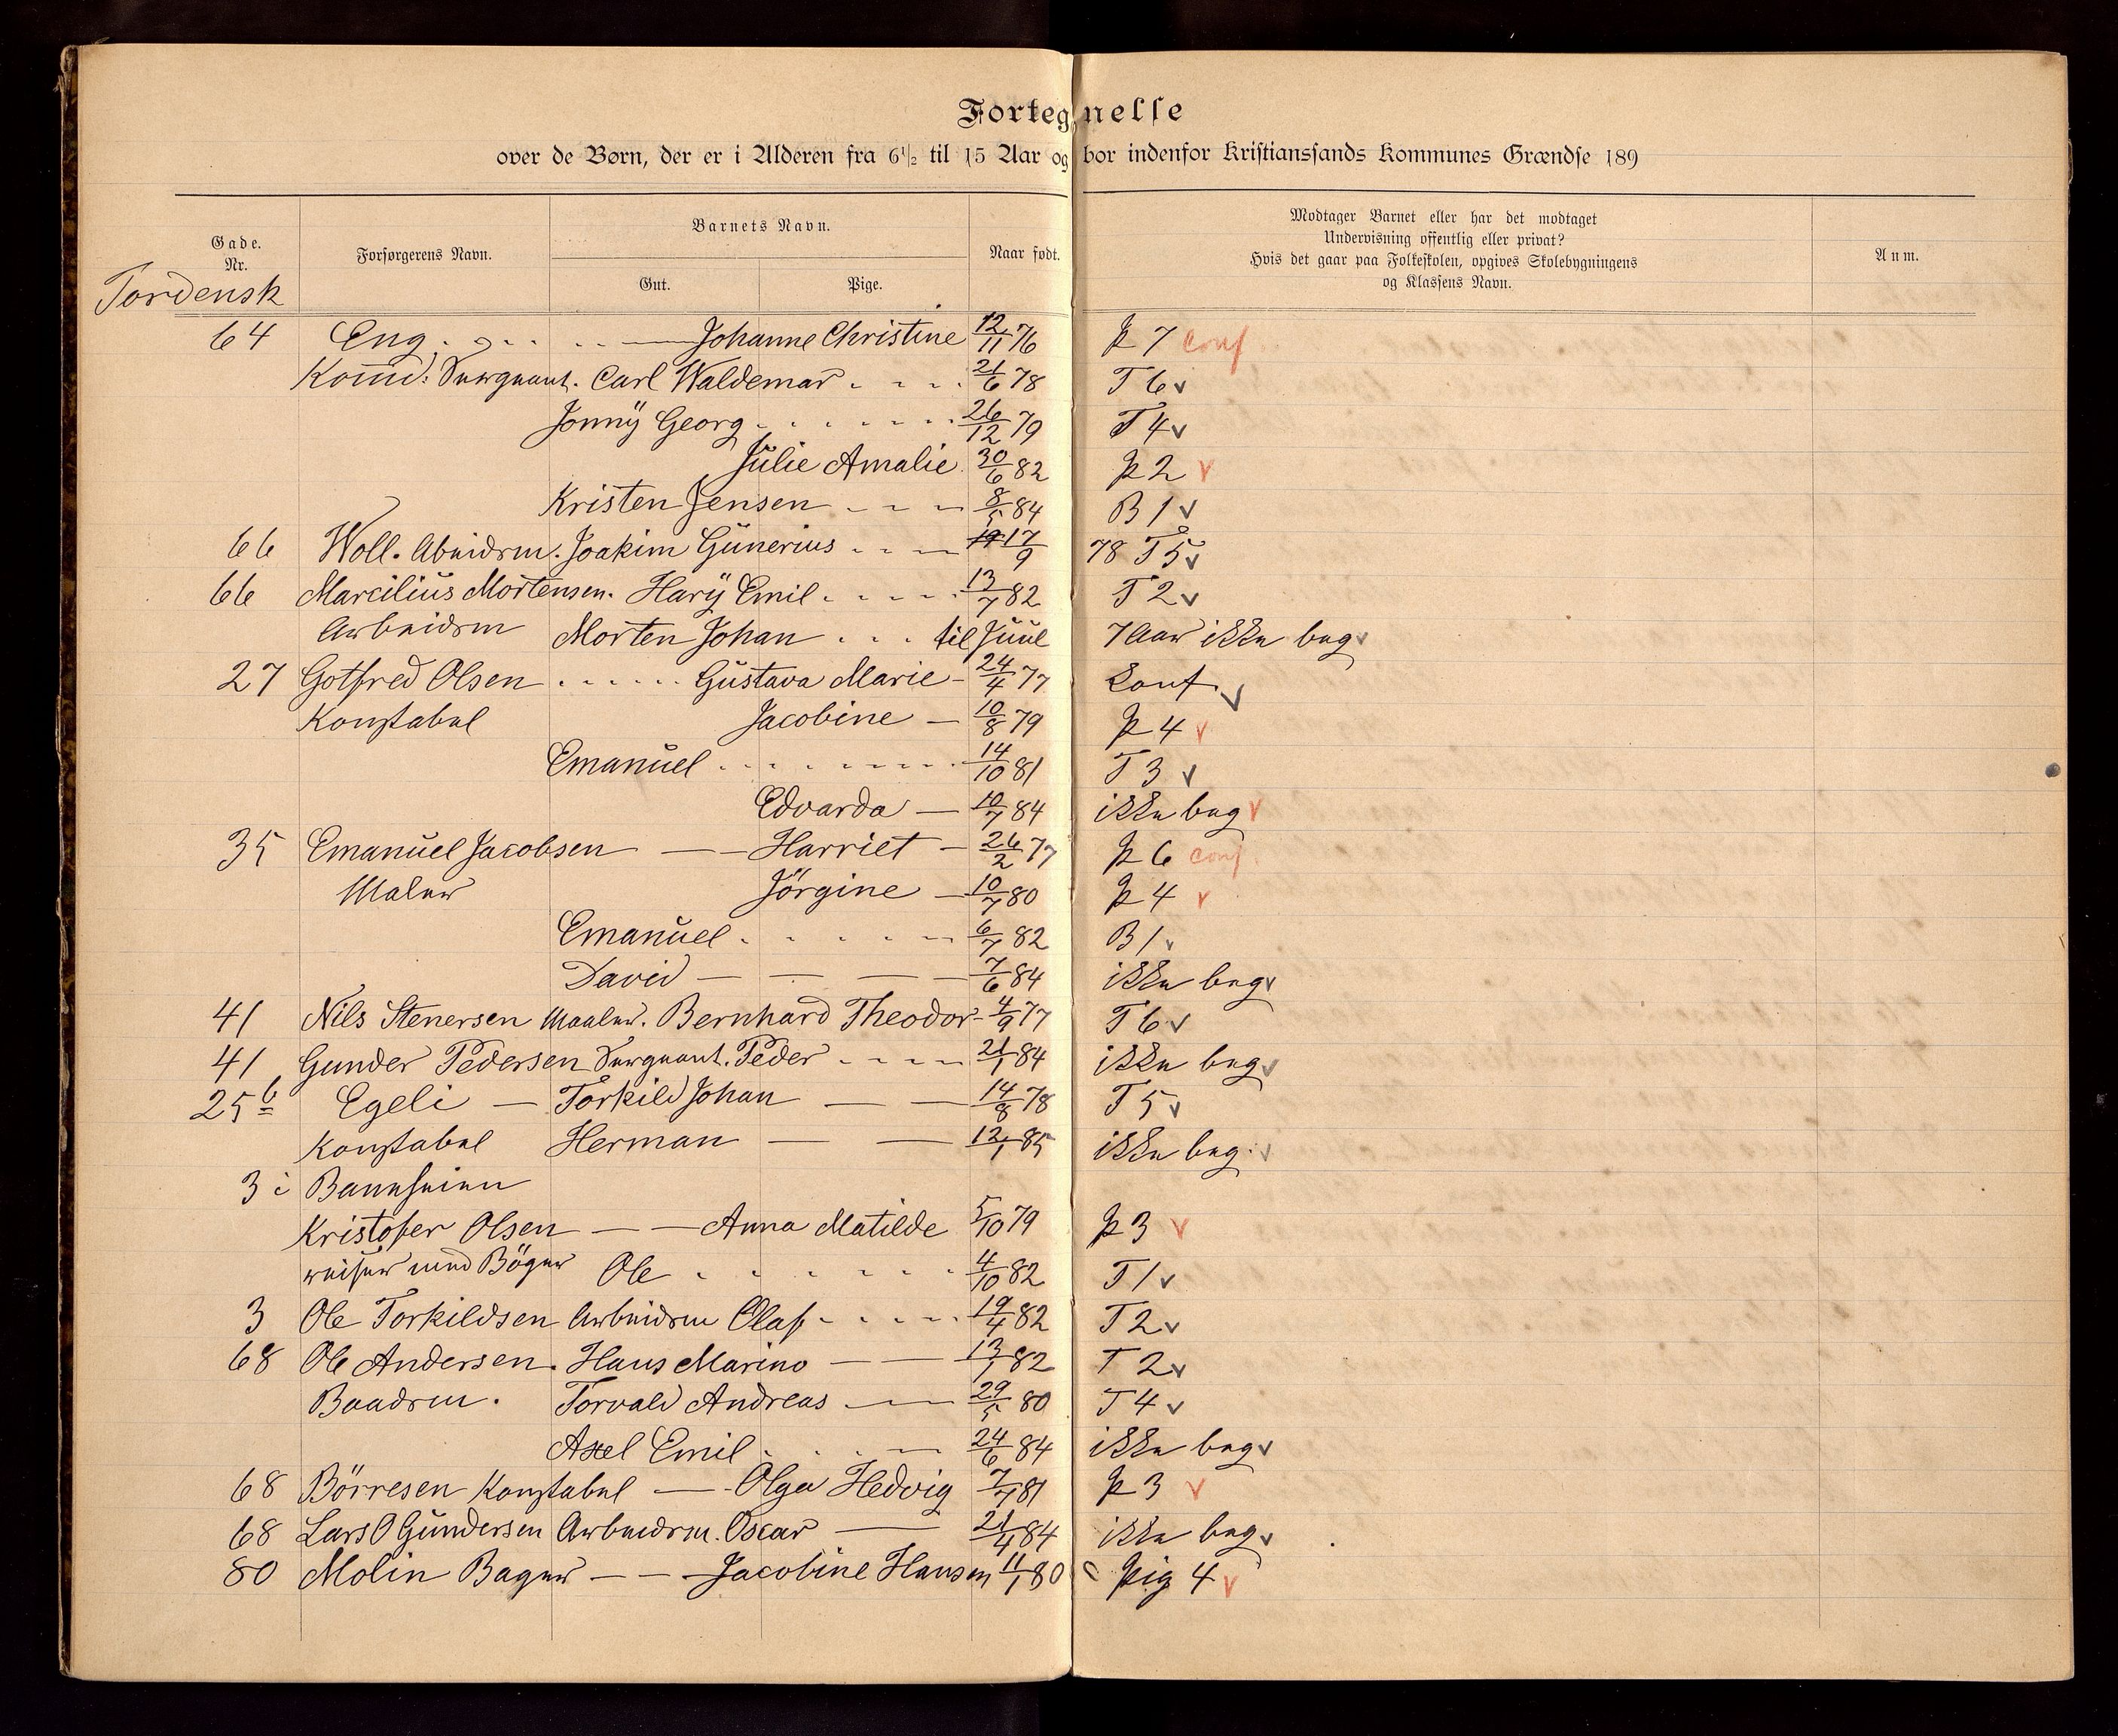 Fortegnelse
over de Børn, der er i Alderen fra 6 1/2 til 15 Aar og bor indenfor Kristianssands Kommunes Grændse 189
Gade. Nr.
Forsørgerens Navn.
Barnets Navn.
Gut.
Pige.
Naar født.
Modtager Barnet eller har det modtaget
Undervisning offentlig eller privat?
Hvis det gaar paa Folkeskolen, opgives Skolebygningens
og Klassens Navn.
Anm.
Tordensk
64 Eng Johanne Christine 12/11 76 P 7 conf
Komd: Sergeant. Carl Waldemar 21/6 78 T 6 v
Jonny Georg 26/12 79 T 4 v
Julie Amalie 30/6 82 P 2 v
Kristen Jensen 8/5 84 B 1 v
66 Woll. Abeidrm. Joakim Gunerius 17/9 78 T 5 v
66 Marcilius Mortensen. Hary Emil 13/7 82 T 2 v
Arbeidrm Morten Johan til Juul 7 Aar ikke beg v
27 Gotfred Olsen Gustava Marie 24/4 77 Conf. v
Konstabel Jacobine 10/8 79 P 4 v
Emanuel 14/10 81 T 3 v
Edvarda 10/7 84 ikke beg v
35 Emanuel Jacobsen Harriet 26/2 77 P 6 conf.
Maler Jörgine 10/7 80 P 4 v
Emanuel 6/7 82 B 1 v
David 7/6 84 ikke beg v
41 Nils Stenersen Maaler. Bernhard Theodor 4/9 77 T 6 v
41 Gunder Pedersen Sergeant. Peder 21/1 84 ikke beg v
25 b Egeli Torkild Johan 14/8 78 T 5 v
Konstabel Herman 12/1 85 ikke beg. v
3 i Baneheien
Kristofer Olsen Anna Matilde 5/10 79 P 3 v
reiser med Böger Ole 4/10 82 T 1 v
3 Ole Torkildsen Arbeidrm Olaf 19/4 82 T 2 v
68 Ole Andersen. Hans Marino 13/1 82 T 2 v
Baadrm. Torvald Andreas 29/5 80 T 4 v
Axel Emil 24/6 84 ikke beg v
68 Börresen Konstabel Olga Hedvig 7/7 81 P 3 v
68 Lars O Gundersen Arbeidrm. Oscar 21/4 84 ikke beg v
80 Molin Bager Jacobine Hansen 11/1 80 Pig 4 v